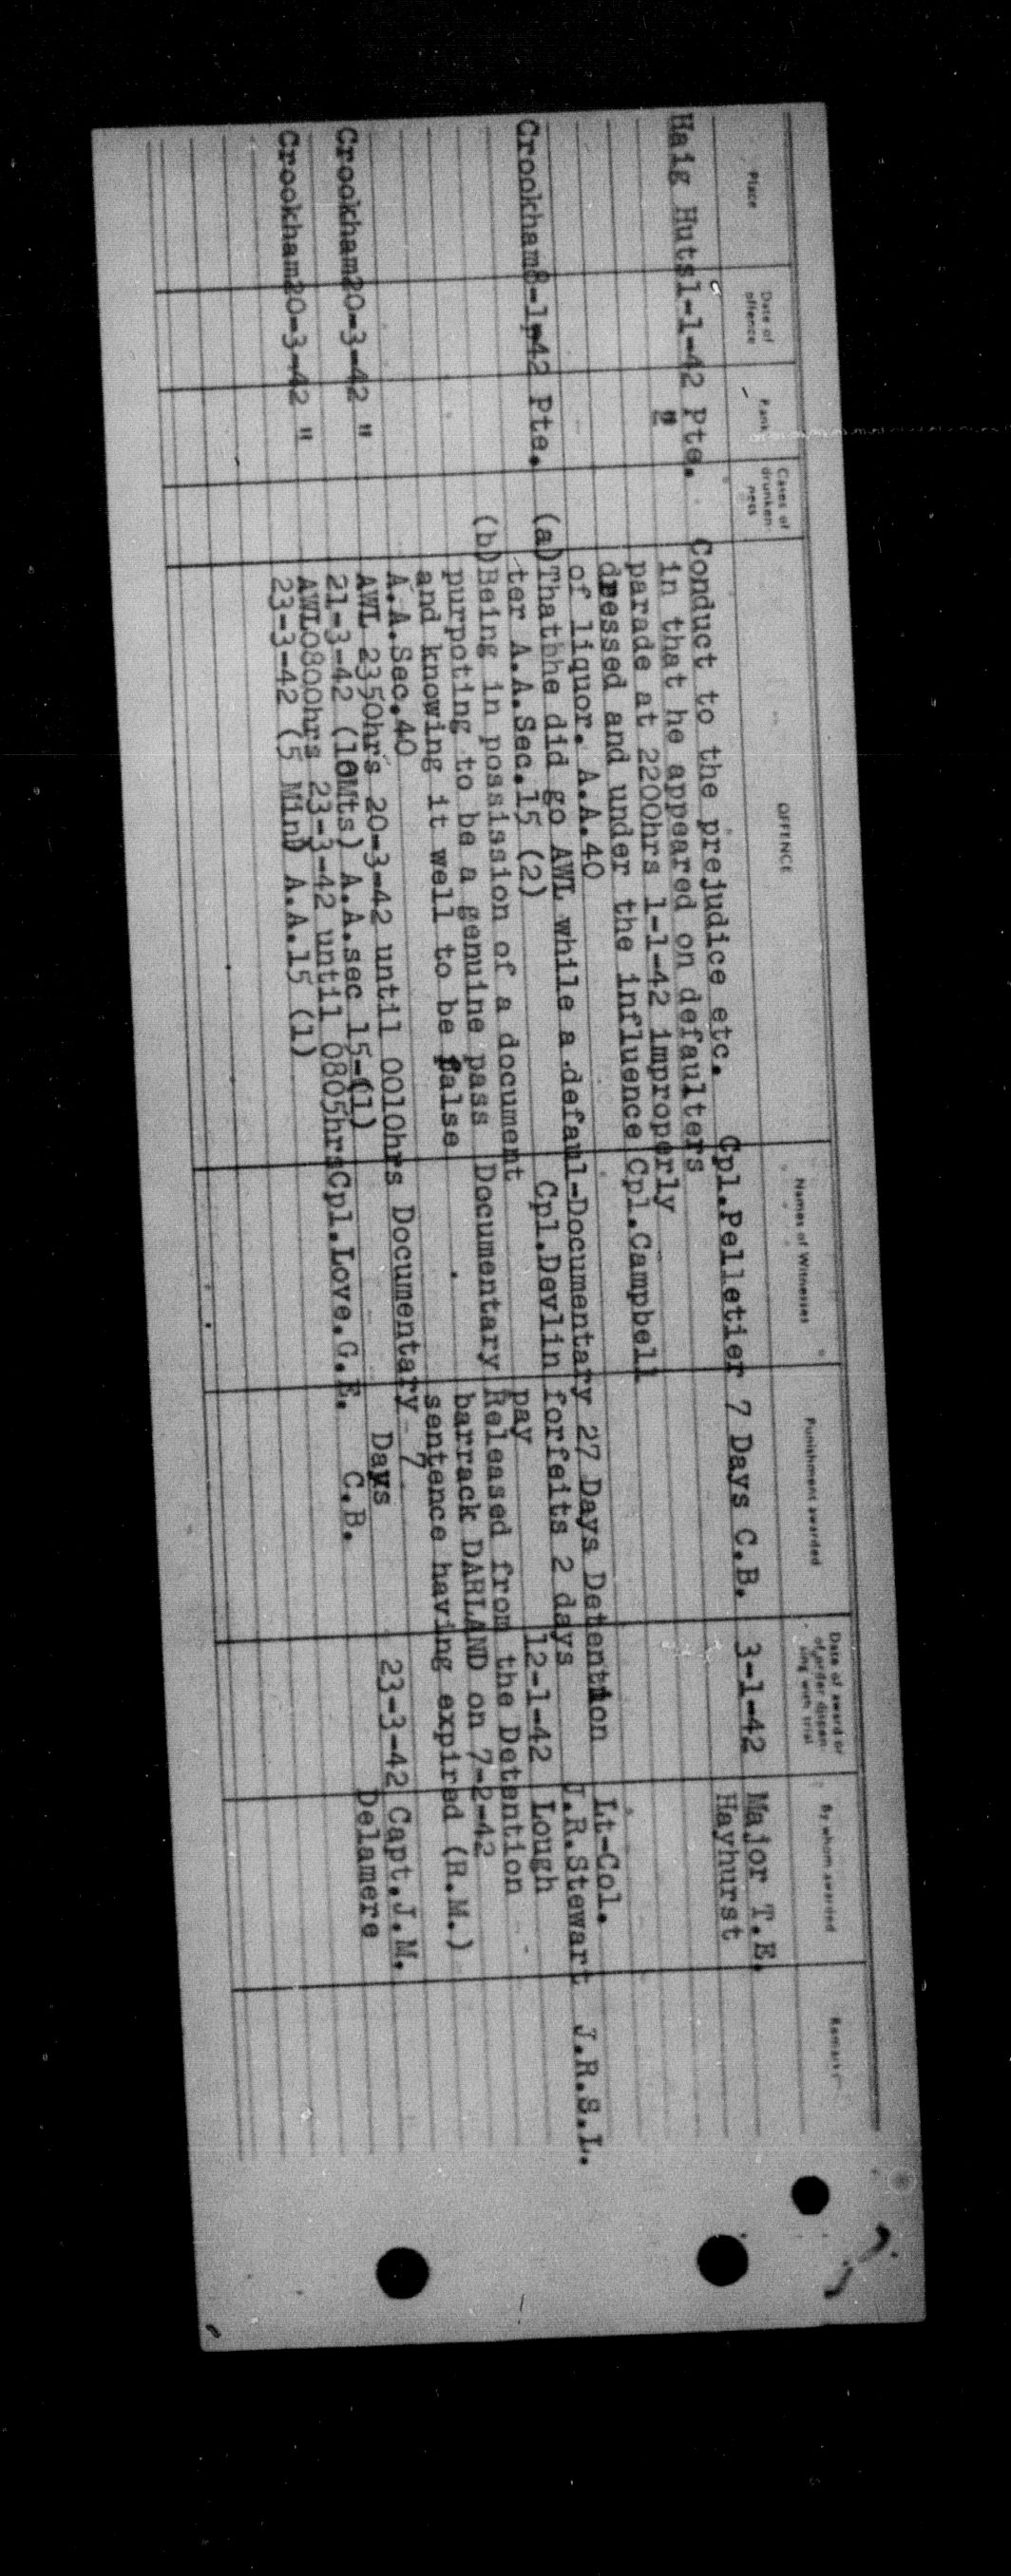 Place Date of offence Rank Cases of drunken-ness OFFENCE Names of Witnesses Punishment awarded Date of award or of order dispen-sing with trial By whom awarded Remarks
Haig Huts 1-1-42 Pte. Conduct to the prejudice etc. Cpl.Pelletier 7 Days C.B. 3-1-42 Major T.E.
" in that he appeared on defaulters Hayhurst
parade at 2200hrs 1-1-42 improperly
dressed and under the influence Cpl.Campbell
of liquor. A.A.40
Crookham 8-1-42 Pte. (a)Thathhe did go AWL while a defaul-Documentary 27 Days Detention Lt-Col.
ter A.A.Sec.15 (2) Cpl.Devlin forfeits 2 days J.R.Stewart J.R.S.L.
pay 12-1-42 Lough
(b)Being in possission of a document
purpoting to be a genuine pass Documentary Released from the Detention
and knowing it well to be false barrack DARLAND on 7-2-42
A.A.Sec.40 sentence having expired (R.M.)
Crookham20-3-42 " AWL 2350hrs 20-3-42 until 0010hrs Documentary 7 23-3-42 Capt.J.M.
21-3-42 (10Mts) A.A.sec 15-(1) Days Delamere
Crookham20-3-42 " AWL0800hrs 23-3-42 until 0805hrsCpl.Love.G.E. C.B.
23-3-42 (5 Min) A.A.15 (1)